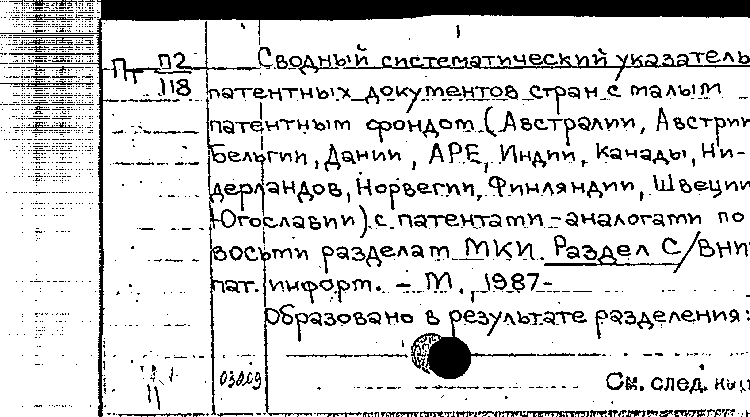 Пт П2/118
Сводный систематический указатель
патентных документов стран с малым
патентным фондом (Австралии, Австрии
Бельгии, Дании, АРЕ, Индии, Канады, Ни-
дерландов, Норвегии, Финляндии, Швеции
Югославии) с патентами-аналогами по
восьми разделам МКИ. Раздел С/ВНИ
пат. информ. – М., 1987-
Образовано в результате разделения:
См. след.